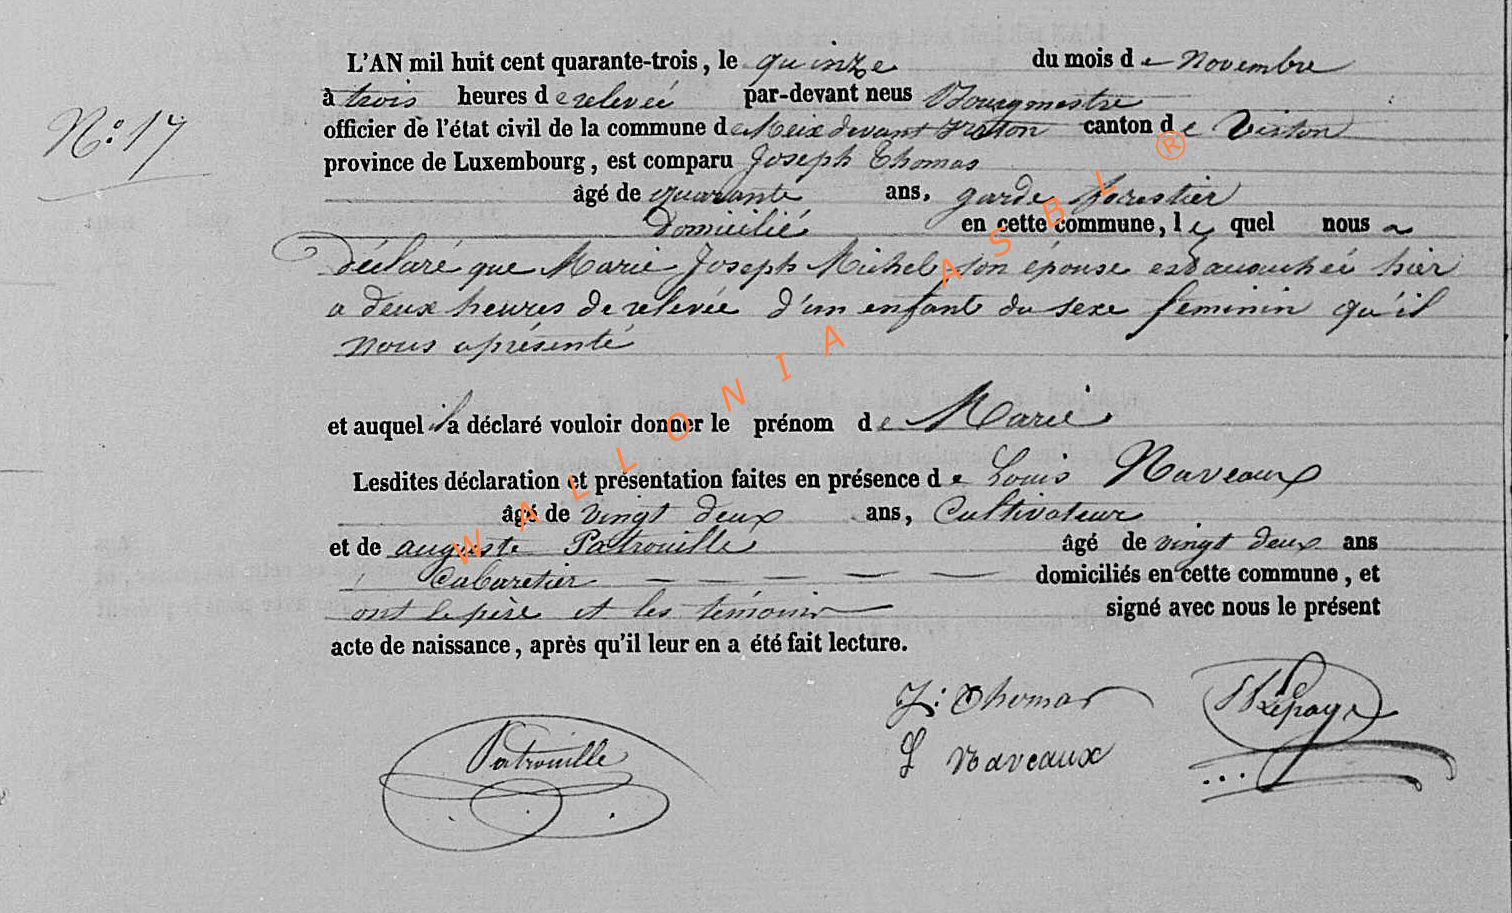 N.º 17
L'AN mil huit cent quarante-trois, le quinze du mois de Novembre
à trois heures de relevée par-devant neus Bourgmestre
officier de l'état civil de la commune de Meix devant Virton canton de Virton
province de Luxembourg, est comparu Joseph Thomas
âgé de quarante ans, garde forestier
Domicilié en cette commune, le quel nous a
déclaré que Marie Joseph Michel son épouse est accouchée hier
a deux heures de relevée d'un enfant du sexe féminin qu'il
nous a présenté
et auquel il a déclaré vouloir donner le prénom de Marie
Lesdites déclaration et présentation faites en présence de Louis Naveaux
âgé de vingt deux ans, Cultivateur
et de auguste Patrouille âgé de vingt deux ans
Cabaretier — — — — — domiciliés en cette commune, et
ont le père et les témoins signé avec nous le présent
acte de naissance, après qu'il leur en a été fait lecture.
J: Thomas Lepage
L Naveaux
Patrouille
WALLONIA ASBL ®